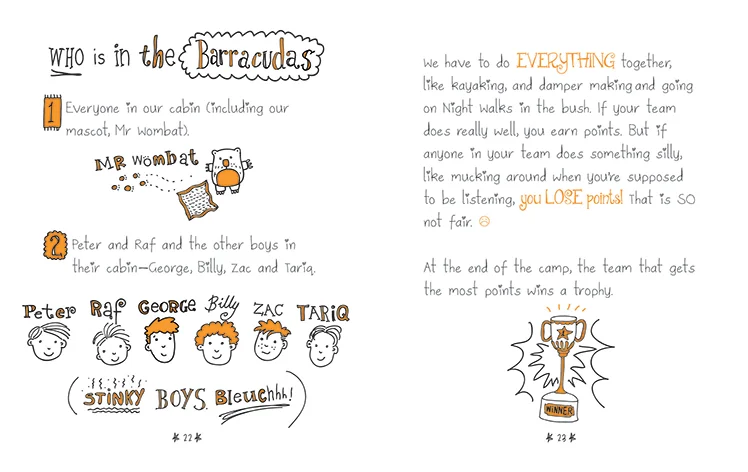 WHO is in the Barracudas
1 Everyone in our cabin (including our
mascot, Mr Wombat).
MR Wombat
2 Peter and Raf and the other boys in
their cabin—George, Billy, Zac and Tariq.
Peter Raf GEORGE Billy ZAC TARIQ
(STINKY BOYS. Bleuchhh!)
* 22 *
We have to do EVERYTHING together,
like kayaking, and damper making and going
on Night Walks in the bush. If your team
does really well, you earn points. But if
anyone in your team does something silly,
like mucking around when you're supposed
to be listening, you LOSE points! That is SO
not fair. ☹
At the end of the camp, the team that gets
the most points wins a trophy.
1
WINNER
* 23 *